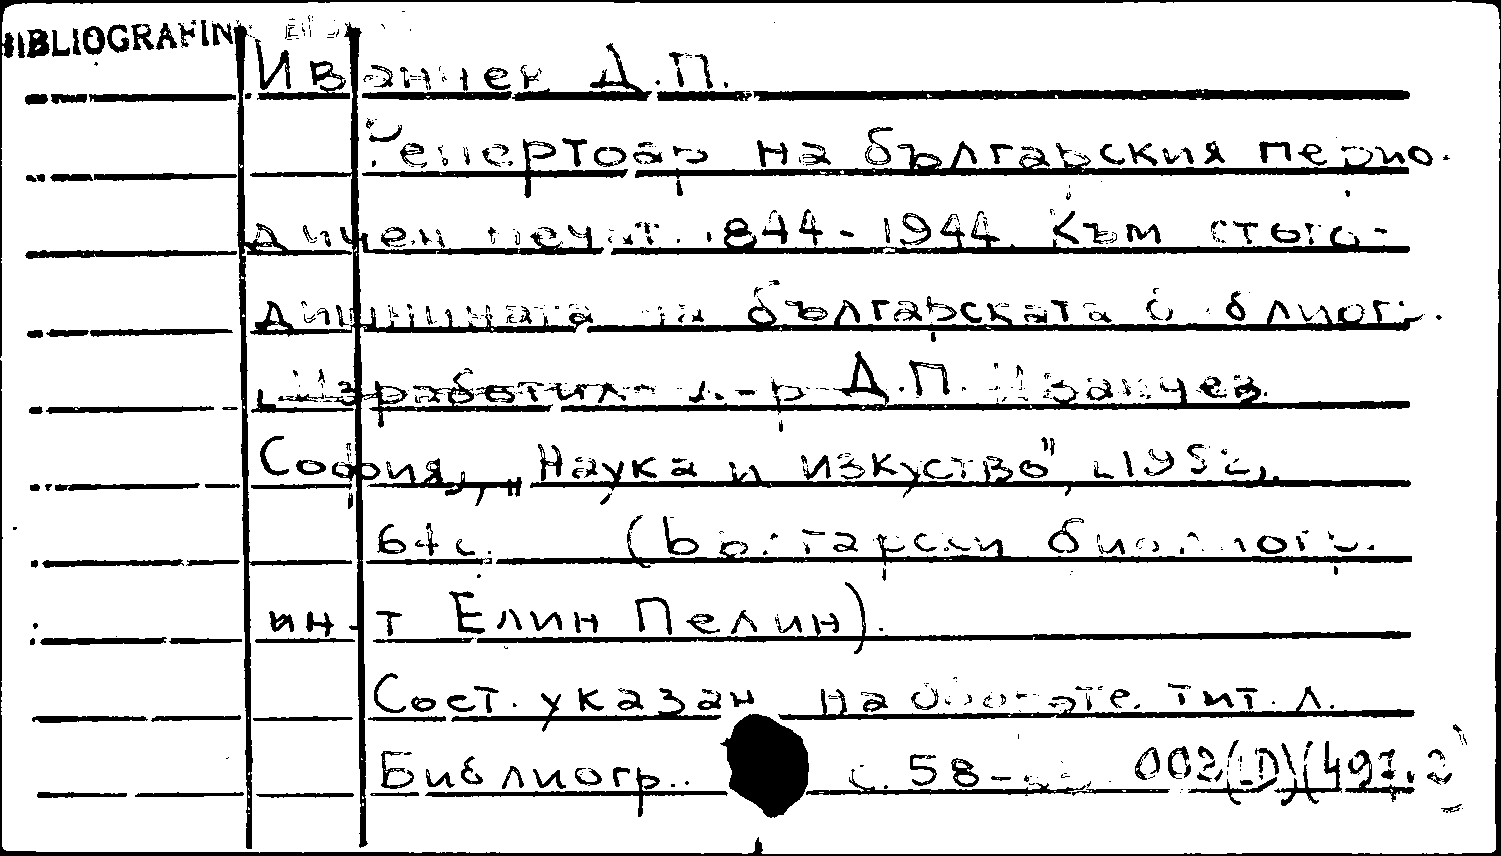 BIBLIOGRAFIN
Иванчев Д.П.
Репертоар на българския перио-
дичен печат. 1844-1944. Към стого-
дишнината на българската библиогр.
[Изработил д-р Д.П. Иванчев.
София], „Наука и изкуство", [1952],
64 с. (Български библиогр.
ин-т Елин Пелин).
Сост. указан на обороте тит. л.
Библиогр.: с. 58- 002(LD)(497.2